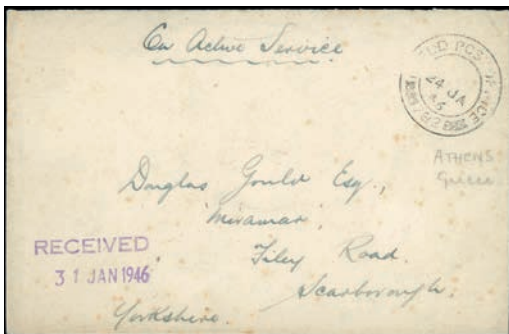 On Active Service
FIELD POST OFFICE
24 JA
46
782
ATHENS
Greece
Douglas Gould Esq.,
'Miramar',
Filey Road.
Scarborough.
Yorkshire.
RECEIVED
31 JAN 1946